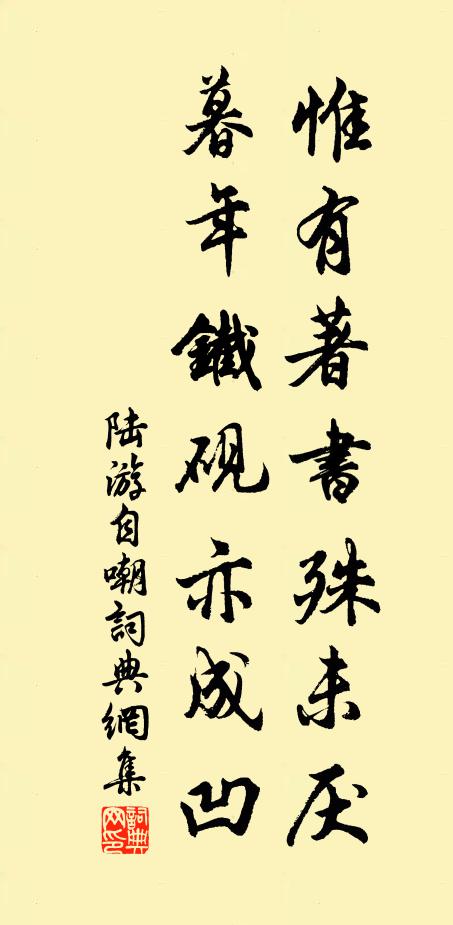 惟有著書殊未厌
暮年鐵硯亦成凹
陆游自嘲詞典網集
詞典网印